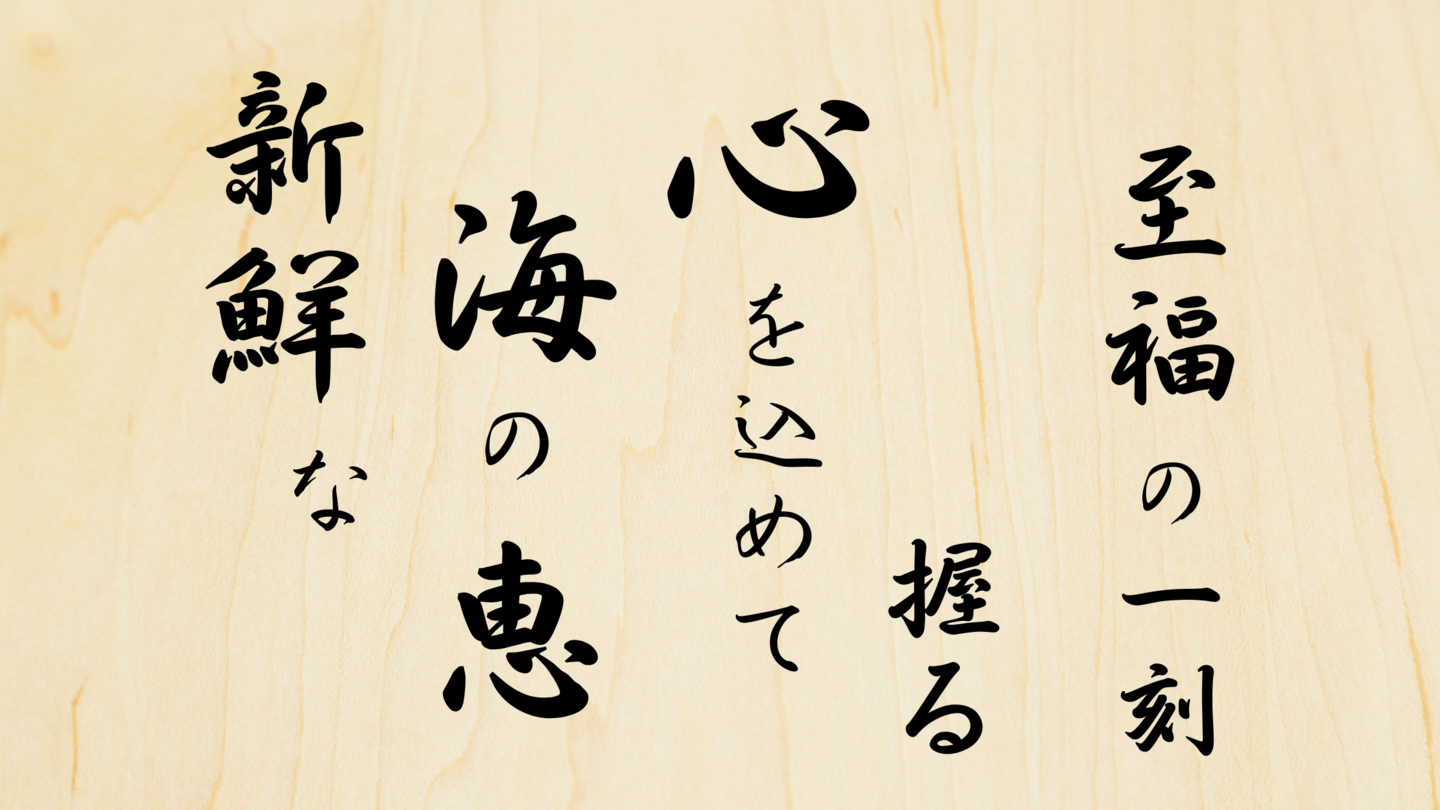 新鮮な
海の恵
心を込めて
握る
至福の一刻